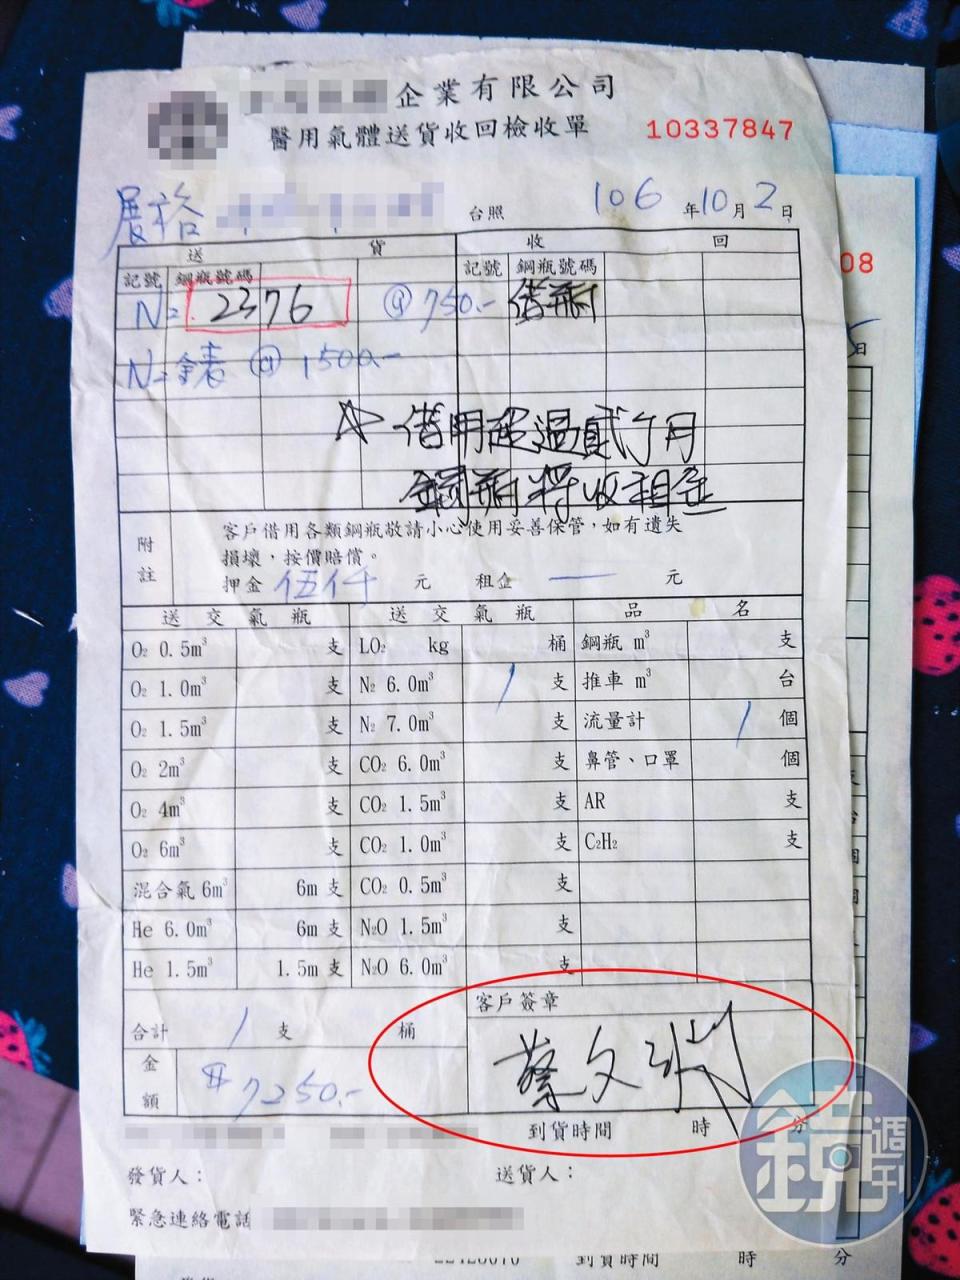 企業有限公司
醫用氣體送貨收回檢收單 10337847
展裕 台照 106年10月2日
送貨 收回
記號 鋼瓶號碼 記號 鋼瓶號碼
N2 2376 @750.- 借瓶
N2錶 @1500.-
☆借用超過貳个月
鋼瓶將收租金
附註 客戶借用各類鋼瓶敬請小心使用妥善保管,如有遺失
損壞,按價賠償。
押金 伍仟 元 租金 — 元
送交氣瓶 送交氣瓶 品名
O₂ 0.5m³ 支 LO₂ kg 桶 鋼瓶 m³ 支
O₂ 1.0m³ 支 N₂ 6.0m³ 1 支 推車 m³ 台
O₂ 1.5m³ 支 N₂ 7.0m³ 支 流量計 1 個
O₂ 2m³ 支 CO₂ 6.0m³ 支 鼻管、口罩 個
O₂ 4m³ 支 CO₂ 1.5m³ 支 AR 支
O₂ 6m³ 支 CO₂ 1.0m³ 支 C₂H₂ 支
混合氣 6m³ 6m 支 CO₂ 0.5m³ 支
He 6.0m³ 6m 支 N₂O 1.5m³ 支
He 1.5m³ 1.5m 支 N₂O 6.0m³ 支
客戶簽章
合計 1 支 桶
蔡文
金額 $7250.-
到貨時間 時 分
發貨人: 送貨人:
緊急連絡電話
08
5日
到貨時間 時 分
鏡週刊